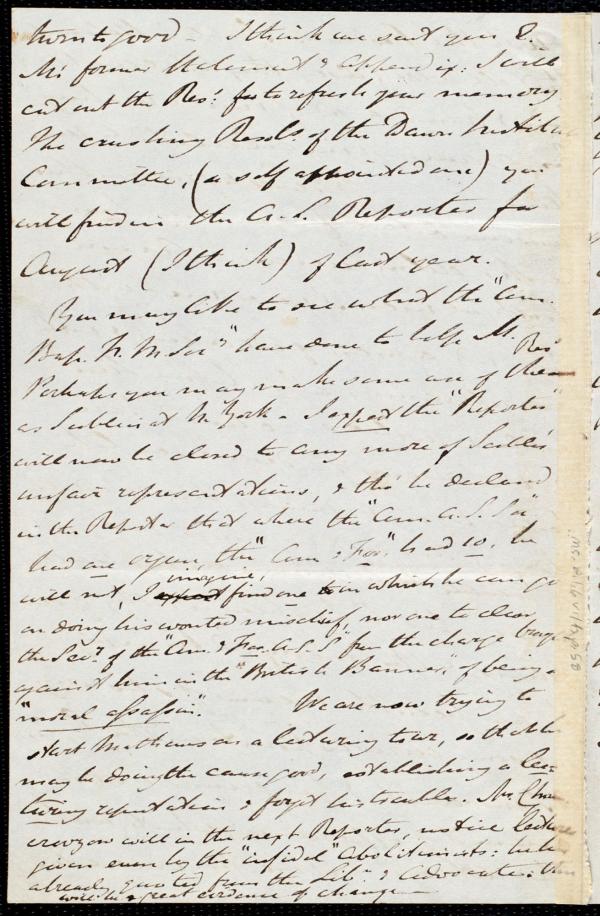 turn to good – I think we sent you E.
M's former Statement & Appendix: I will
cut out the Res: to refresh your memory
The crushing Resolns. of the Dawn Institute
Committee, (a self appointed one) you
will find in the A. S. Reporter for
August (I think) of last year.
You may like to see what the "Am.
Bap. F. M. Soc" have done to help M.
Perhaps you may make some use of these Res
as is at N. York – I expect the "Reporter"
will now be closed to any more of
unfair representations, & tho' he declared
in the Reporter that where the "Am. A. S. Soc"
had one organ, the "Am & For" had 10, he
will not, I imagine, find one in which he can go
on doing his wonted mischief, nor one to clear
the Secy. of the "Am. & For. A. S. S" from the charge brought
against him in the "British Banner," of being a
"moral assassin". We are now trying to
start Mathews on a lecturing tour, so that he
may be doing the cause good, establishing a lec-
turing reputation & forget his trouble. Mr.
will in the next Reporter, notice lectures
given even by the "infidel" Abolitionists: he has
already quoted from the Lib. & Advocate: this
will be a great evidence of change –